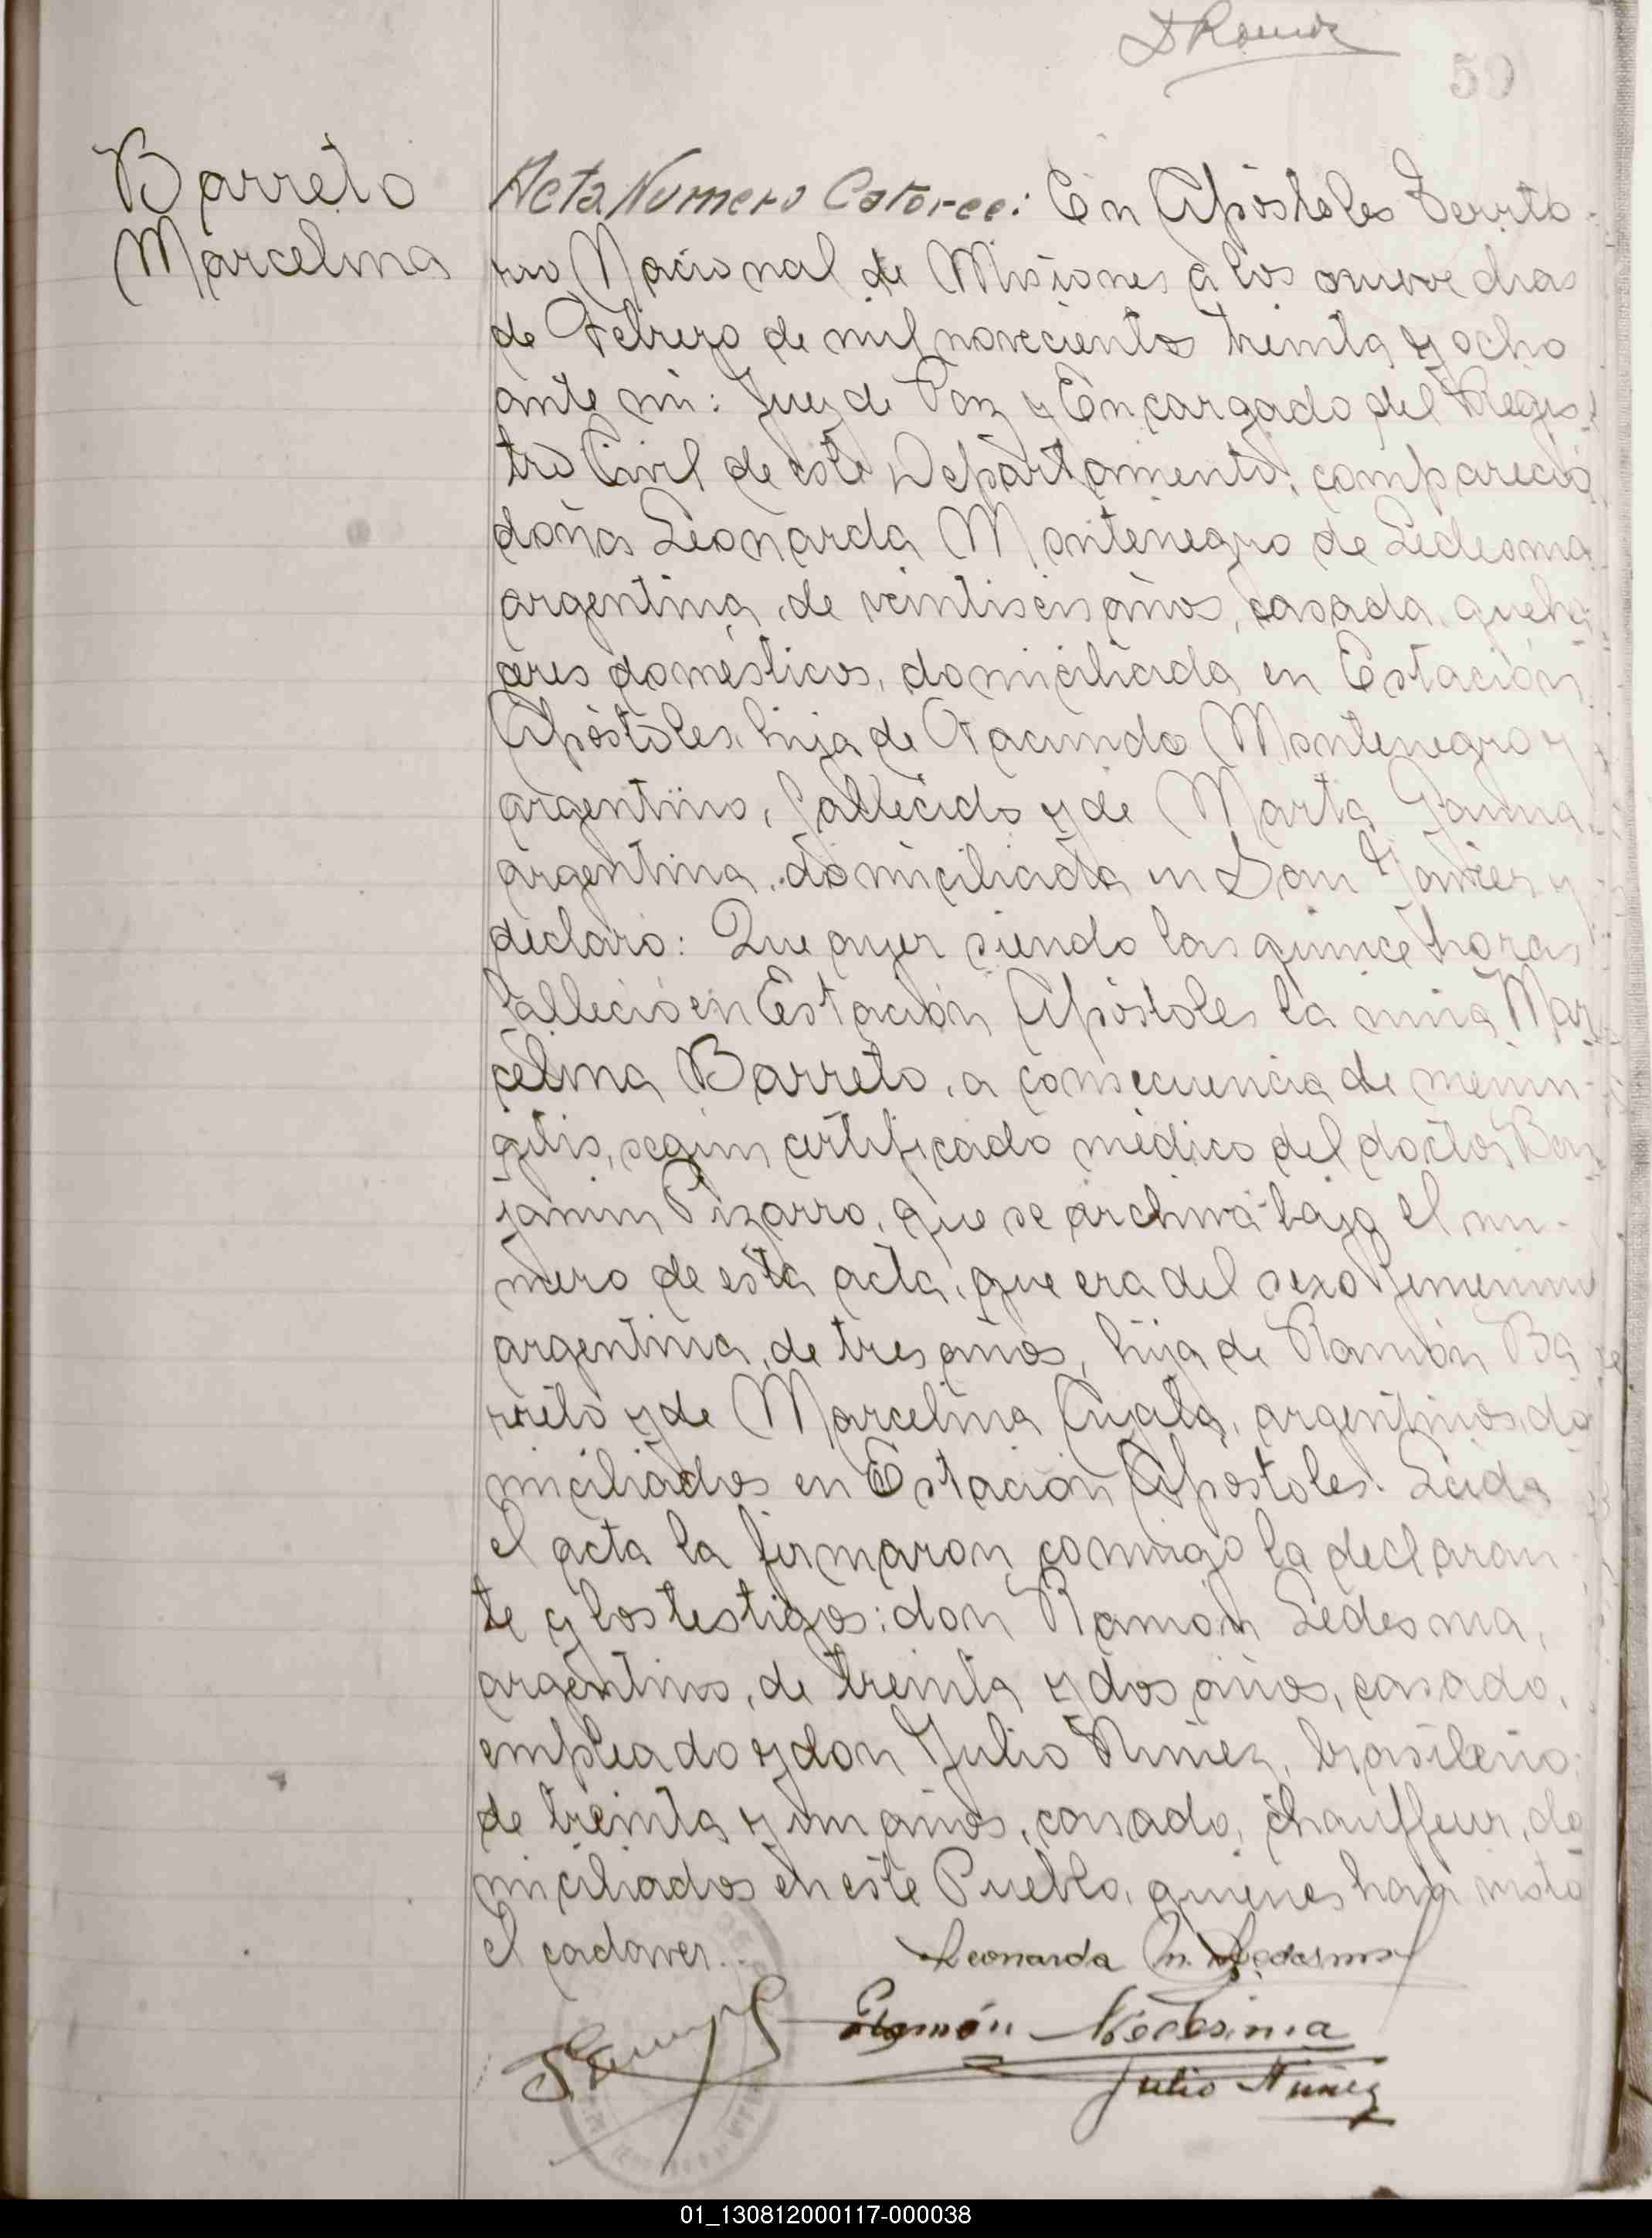 50
Barreto
Marcelina
Acta Numero Catorce: En Apóstoles Territo-
rio Nacional de Misiones a los nueve dias
de Febrero de mil novecientos treinta y ocho
ante mi: Juez de Paz y Encargado del Regis-
tro Civil de este Departamento, compareció
doña Leonarda Montenegro de Ledesma
argentina, de veintiseis años, casada, queha
ceres domésticos, domiciliada en Estación
Apóstoles, hija de Facundo Montenegro y
argentino, fallecido y de Marta
argentina, domiciliada en San Javier y
declaró: Que ayer siendo las quince horas
falleció en Estación Apóstoles la niña Mar
celina Barreto, a consecuencia de menin-
gitis, según certificado médico del doctor Ben
jamin Pizarro, que se archiva bajo el nú-
mero de esta acta, que era del sexo femenino
argentina, de tres años, hija de Ramón Ba
rreto y de Marcelina argentinos, do
miciliados en Estación Apóstoles. Leida
el acta la firmaron conmigo la declaran-
te y los testigos: don Ramón Ledesma,
argentino, de treinta y dos años, casado,
empleado y don Julio Núñez, brasileño,
de treinta y un años, casado, chauffeur, do
miciliados en este Pueblo, quienes han visto
el cadaver.
Leonarda M. Ledesma
Ramón Ledesma
Julio Núñez
01_130812000117-000038